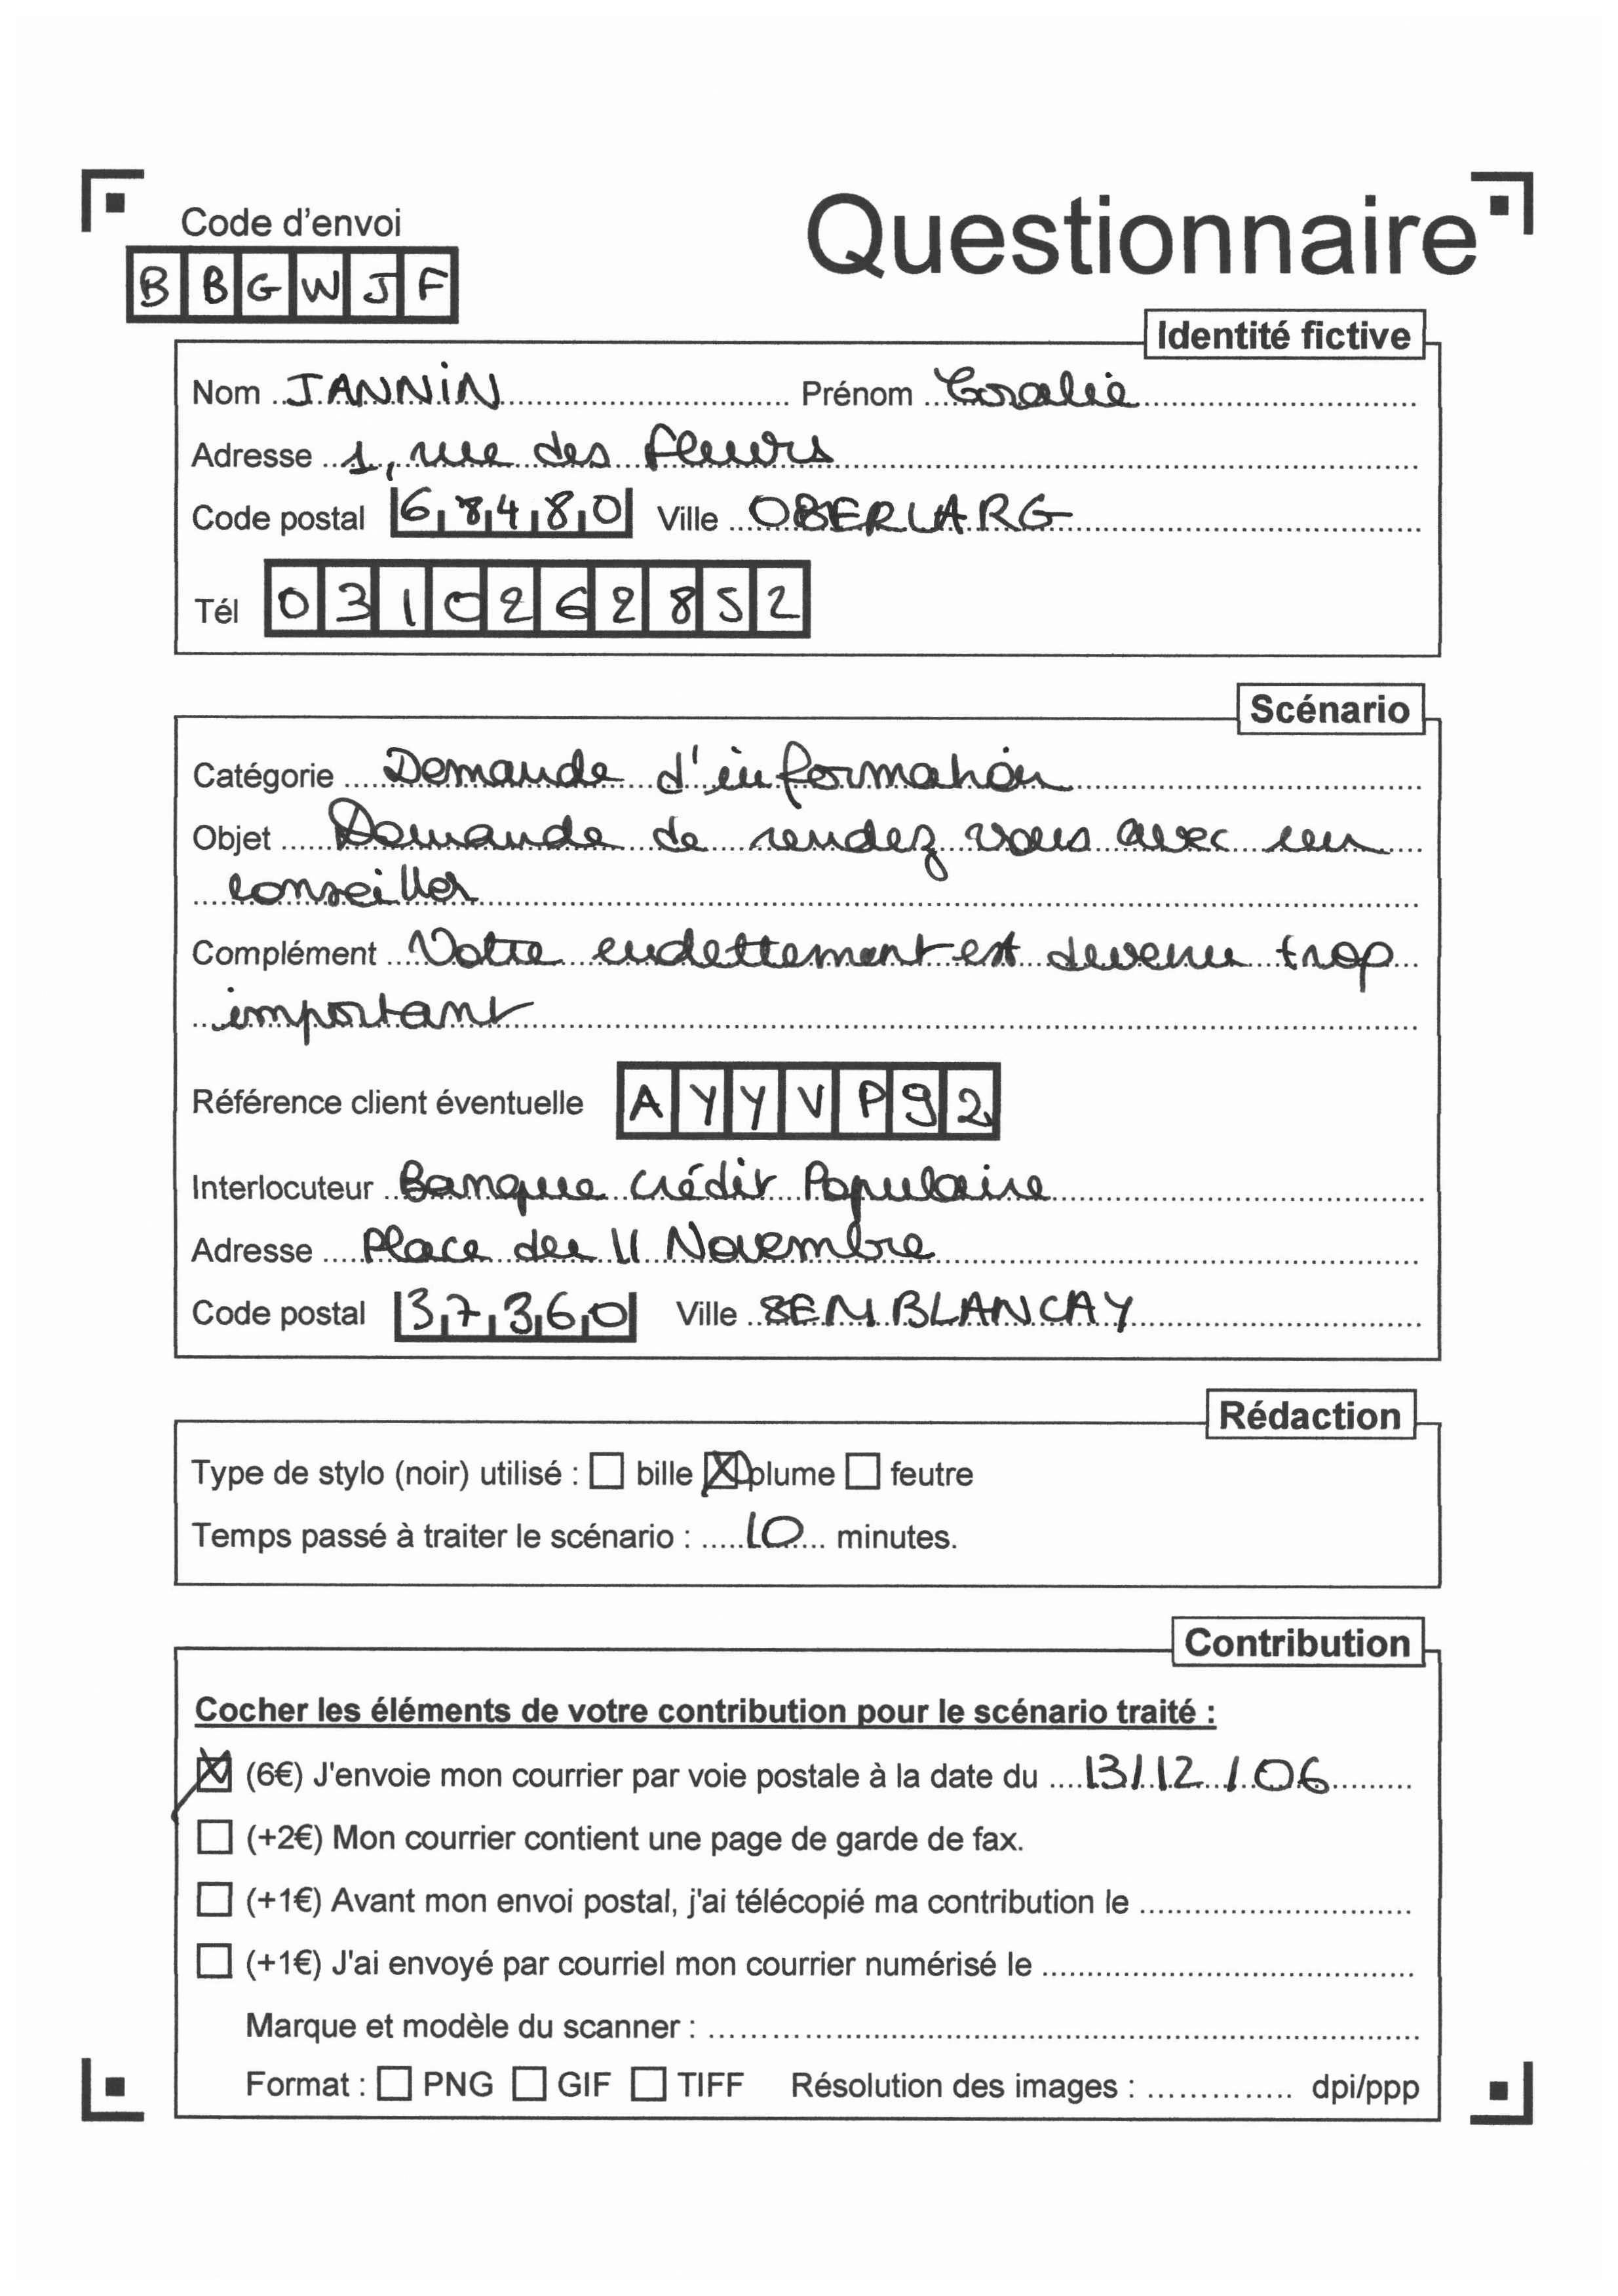 Code d'envoi
Questionnaire
B B G W J F
Identité fictive
Nom JANNIN Prénom Coralie
Adresse 1, rue des fleurs
Code postal 68480 Ville OBERLARG
Tél 0310262852
Scénario
Catégorie Demande d'information
Objet Demande de rendez vous avec un
conseiller
Complément Votre endettement est devenu trop
important
Référence client éventuelle A Y Y V P 9 2
Interlocuteur Banque Crédit Populaire
Adresse Place du 11 Novembre
Code postal 37360 Ville SEMBLANCAY
Rédaction
Type de stylo (noir) utilisé : bille plume feutre
Temps passé à traiter le scénario : 10 minutes.
Contribution
Cocher les éléments de votre contribution pour le scénario traité :
(6€) J'envoie mon courrier par voie postale à la date du 13/12/06
(+2€) Mon courrier contient une page de garde de fax.
(+1€) Avant mon envoi postal, j'ai télécopié ma contribution le
(+1€) J'ai envoyé par courriel mon courrier numérisé le
Marque et modèle du scanner :
Format : PNG GIF TIFF Résolution des images : dpi/ppp